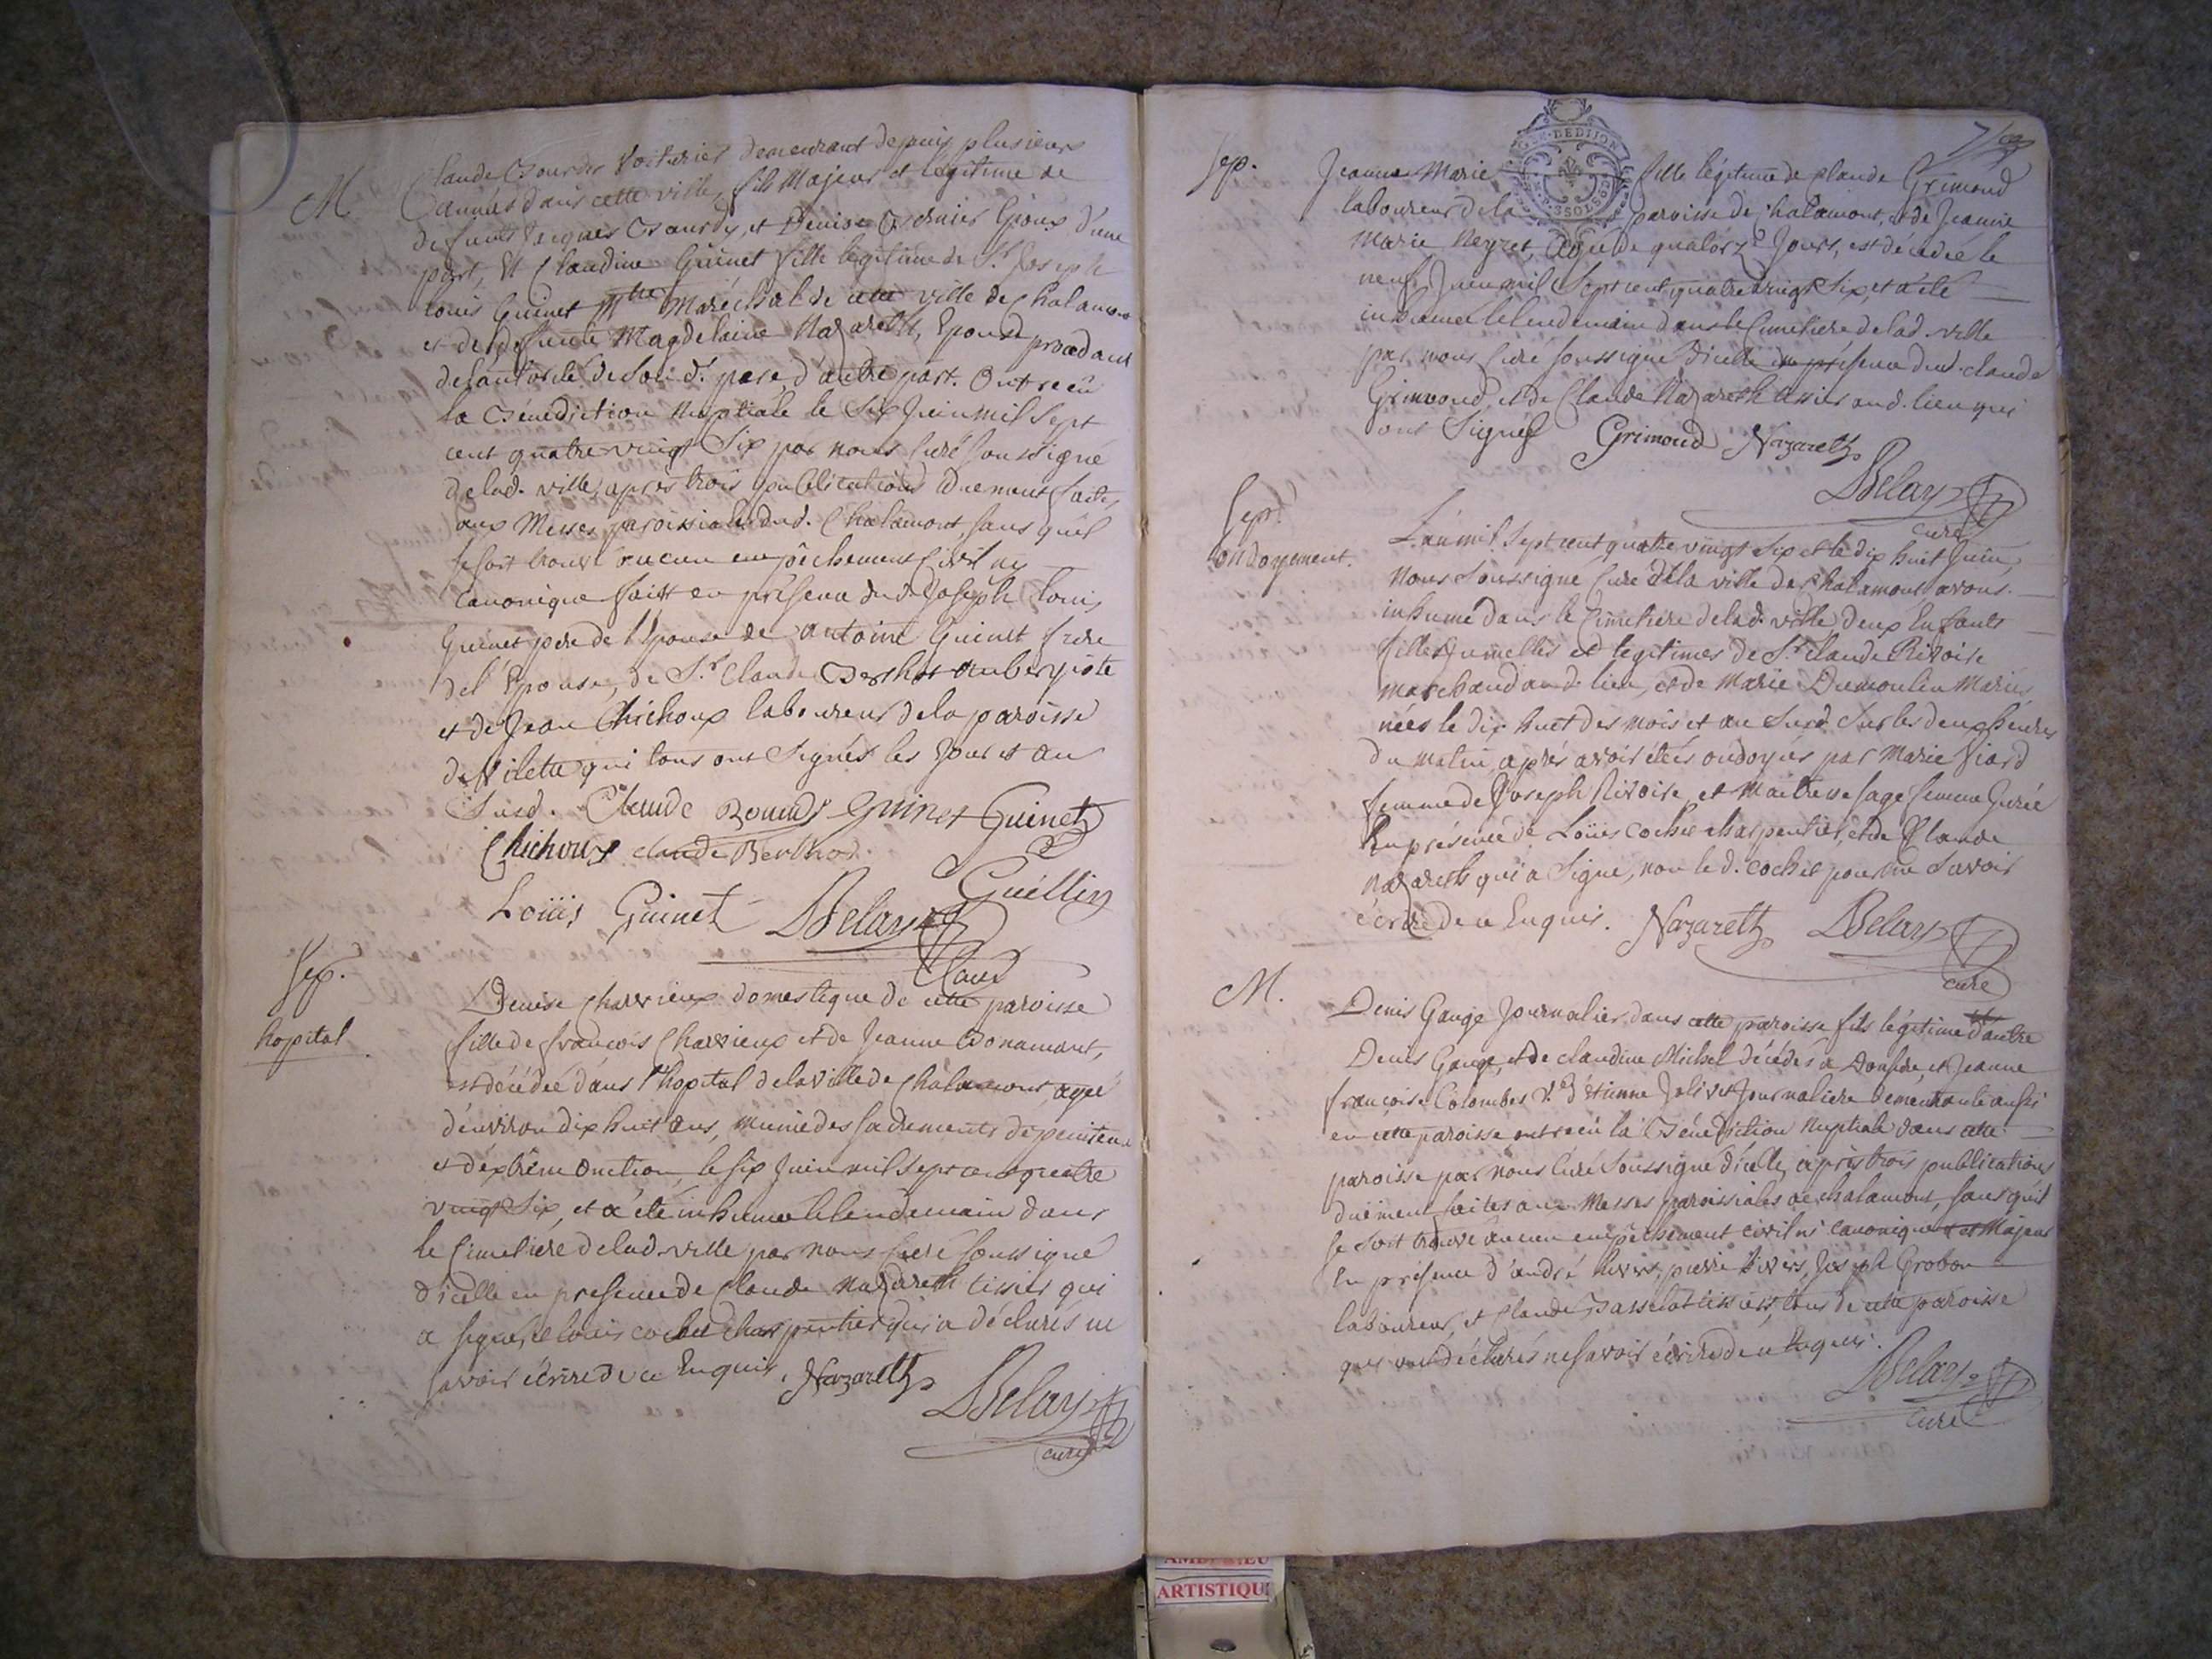 M.
Claude Bourdy Voiturier demeurant depuis plusieurs
années dans cette ville, fils Majeur et légitime de
defunts Jacques Bourdy, et Denise Époux d'une
part, Et Claudine Guinet fille légitime de Sr. Joseph
Louis Guinet Mtre Maréchal de cette ville de Chalamont
et de defunte Magdelaine Nazareth, Epouse procedant
de l'autorité de son d. pere, d'autre part. Ont reçu
la Bénédiction Nuptiale le Six Juin mil Sept
cent quatre vingt Six par nous Curé Soussigné
de lad. ville, apres trois publications duement faites
aux Messes paroissiales dud. Chalamont, sans qu'il
se soit trouvé aucun empêchement Civil ny
Canonique fait en présence dud. Joseph Louis
Guinet pere de l'Epouse de Antoine Guinet frere
de l'Epouse, de Sr. Claude Berthot aubergiste
et de Jean Chichoux laboureur de la paroisse
de Vilette qui tous ont Signés les Jour et an
Susd. Claude Bourdy Guinet Guinet
Chichoux Claude Berthod
Guëllin
Loüis Guinet Belay
Curé
Sep.
hopital
Denise Charvieux domestique de cette paroisse
fille de françois Charvieux et de Jeanne Bonamant,
est décédée dans l'hopital de la ville de Chalamont, agée
d'environ dix huit ans, munie des Sacrements de penitence
et d'extrême Onction, le six Juin mil Sept cent quatre
vingt Six, et a été inhumée le lendemain dans
le Cimetiere de lad. ville par nous Curé Soussigné
d'icelle en presence de Claude Nazareth tissier qui
a signé, et Louis cochet charpentier qui a déclarés ne
savoir écrire de ce Enquis. Nazareth
Belay
curé
7
Sep.
DE DIJON
Jeanne Marie fille légitime de Claude Grimond
laboureur de la paroisse de Chalamont, et de Jeanne
Marie Neyret, agée de quatorze Jours, est décédée le
neuf Juin mil Sept cent quatre vingt Six, et a été
inhumée le lendemain dans le Cimetiere de lad. ville
par nous Curé soussigné d'icelle en présence dud. claude
Grimond, et de Claude Nazareth tissier aud. lieu qui
ont Signés Grimond Nazareth
Belay
curé
Sep.
ondoyement.
L'an mil Sept cent quatre vingt Six et le dix huit Juin,
Nous Soussigné Curé de la ville de Chalamont avons
inhumé dans le Cimetiere de lad. ville deux Enfants
filles Jumelles et legitimes de Sr. Claude Rivoire
marchand aud. lieu, et de Marie Dumoulin Mariés
nées le dix huit des mois et an Susd. Sur les deux heures
du matin, après avoir étés ondoyés par Marie fiard
femme de Joseph Rivoire et Maitresse sage femme Jurée
En présence de Loüis Cochet charpentier, et de Claude
Nazareth qui a Signé, non le d. Cochet pour ne Savoir
écrire de ce Enquis. Nazareth Belay
curé
M.
Denis Gauge Journalier, dans cette paroisse fils légitime d'autre
Denis Gauge, et de claudine Michel décédés a Dombes, et Jeanne
françoise Colombet Ve. d'étienne Jolivet Journaliere demeurante aussi
en cette paroisse ont reçu la Bénédiction Nuptiale dans cette
paroisse par nous Curé Soussigné d'icelle, après trois publications
duëment faites aux Messes paroissiales de chalamont, sans qu'il
se soit trouvé aucun empêchement civil ni Canonique et Majeur
En présence d'andré Riviers, pierre Rivers, Joseph Grobon
laboureur, et Claude Basselat tissier, tous de cette paroisse
qui ont déclarés ne savoir écrire de ce Enquis.
Belay
curé
ARTISTIQU